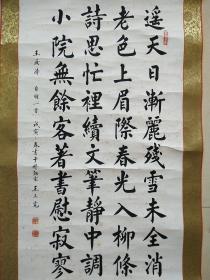 遥天日漸麗残雪未全消
老色上眉際春光入柳條
詩思忙裡續文筆靜中調
小院無餘客著書慰寂寥
一首 戊寅 春書于